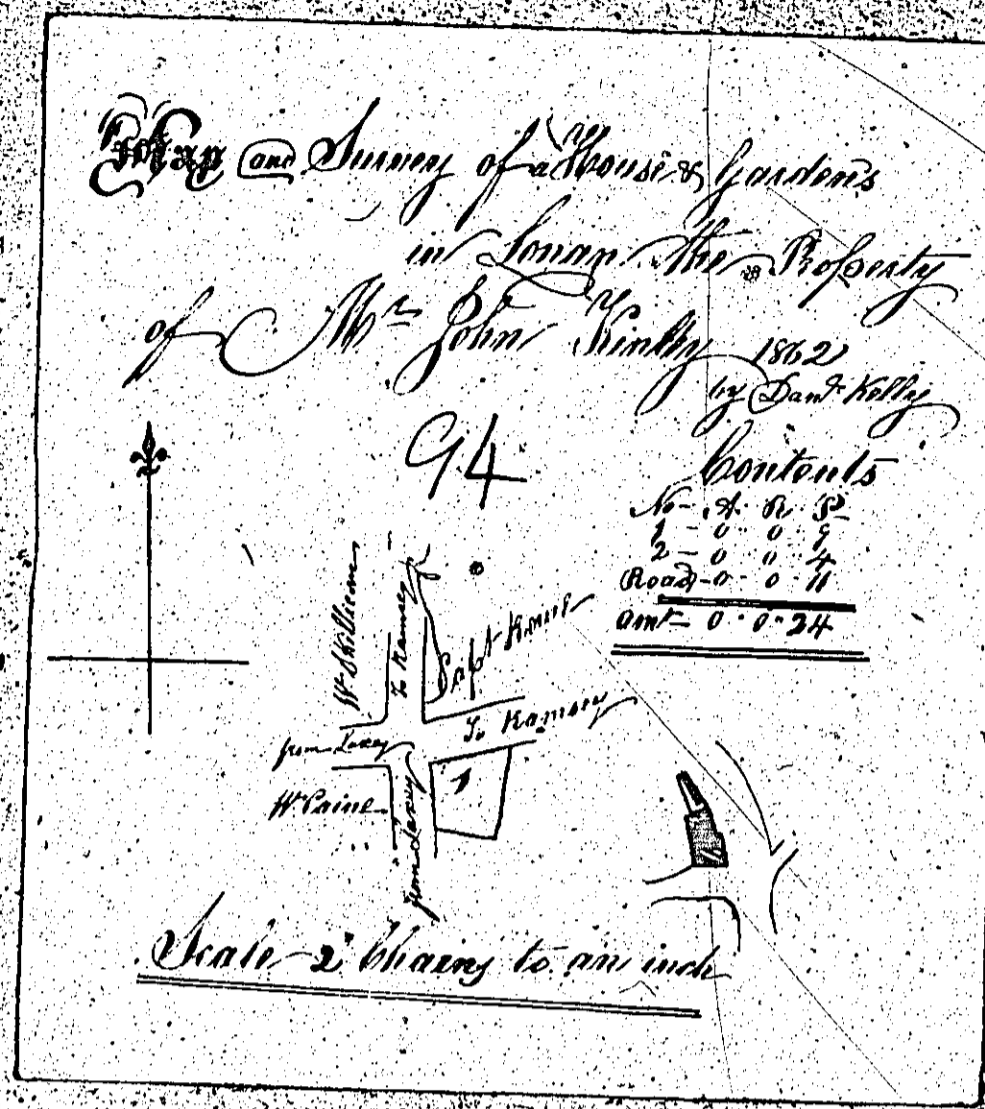 Map and Survey of a House & Gardens
in Lonan the Property
of Mr John Kinley 1862
by Danl Kelly
94
Contents
No - A. R. P
1 - 0 0 9
2 - 0 0 4
Road - 0 - 0 - 11
Amt - 0 - 0 - 24
W Skillicorn
To Ramsey
Capt
To Ramsey
from Laxey
1
W Caine
from Laxey
2
Scale - 2 Chains to an inch